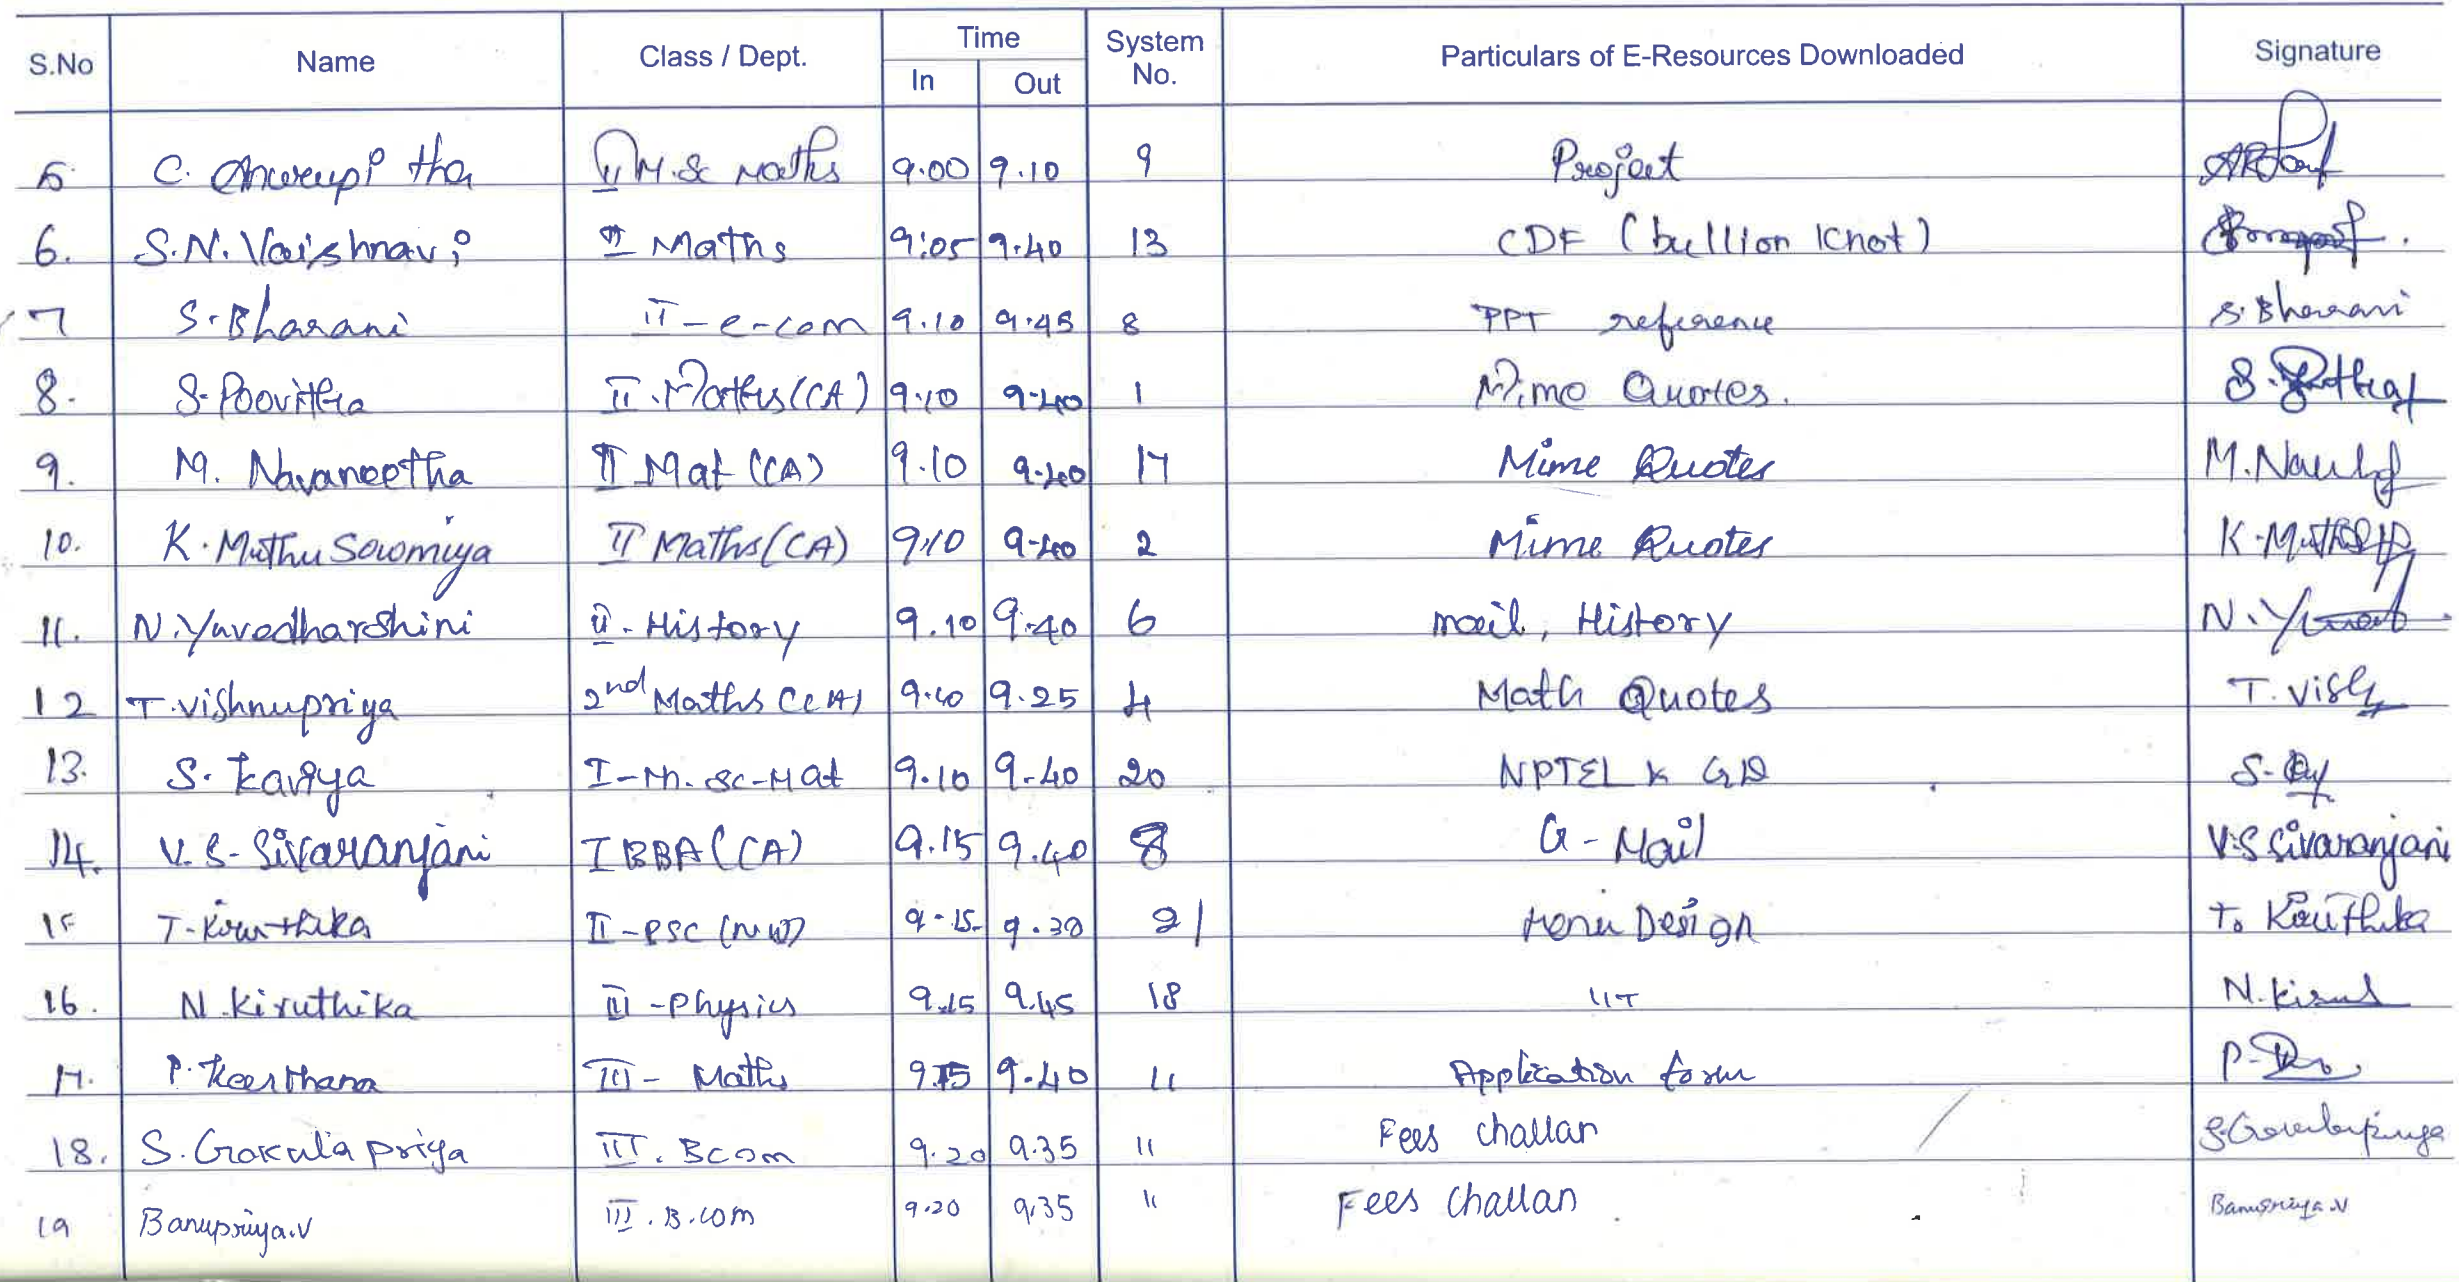 S.No Name Class / Dept. Time System No. Particulars of E-Resources Downloaded Signature
In Out
5. C. Anurupi tha II M.Sc Maths 9.00 9.10 9 Project
6. S.N. Vaishnavi II Maths 9:05 9.40 13 CDF (bullion Knot)
7 S. Bharani II - e-com 9.10 9.45 8 PPT reference S. Bharani
8. S. Poovitha II. Maths (CA) 9.10 9.40 1 Mime Quotes.
9. M. Navaneetha II Mat (CA) 9.10 9.40 17 Mime Quotes
10. K. Muthu Sowmiya II Maths (CA) 9.10 9.40 2 Mime Quotes
11. N. Yuvadharshini II - History 9.10 9.40 6 mail, History
12 T. Vishnupriya 2nd Maths (CA) 9.10 9.25 4 Math Quotes T. Vish
13. S. Kaviya I - M. Sc - Mat 9.10 9.40 20 NPTEL
14. V. S. Sivaranjani I BBA (CA) 9.15 9.40 8 G - Mail V.S Sivaranjani
15 T. Kiruthika II - PSC 9.15 9.30 21 Menu Design T. Kiruthika
16. N. Kiruthika III - Physics 9.15 9.45 18 IIT N. Kiru
17. P. Keerthana III - Maths 9.15 9.40 11 Application form
18. S. Gokula priya III. Bcom 9.20 9.35 11 Fees challan S. Gokulapriya
19 Banupriya.V III. B.com 9.20 9.35 11 Fees Challan Banupriya.V